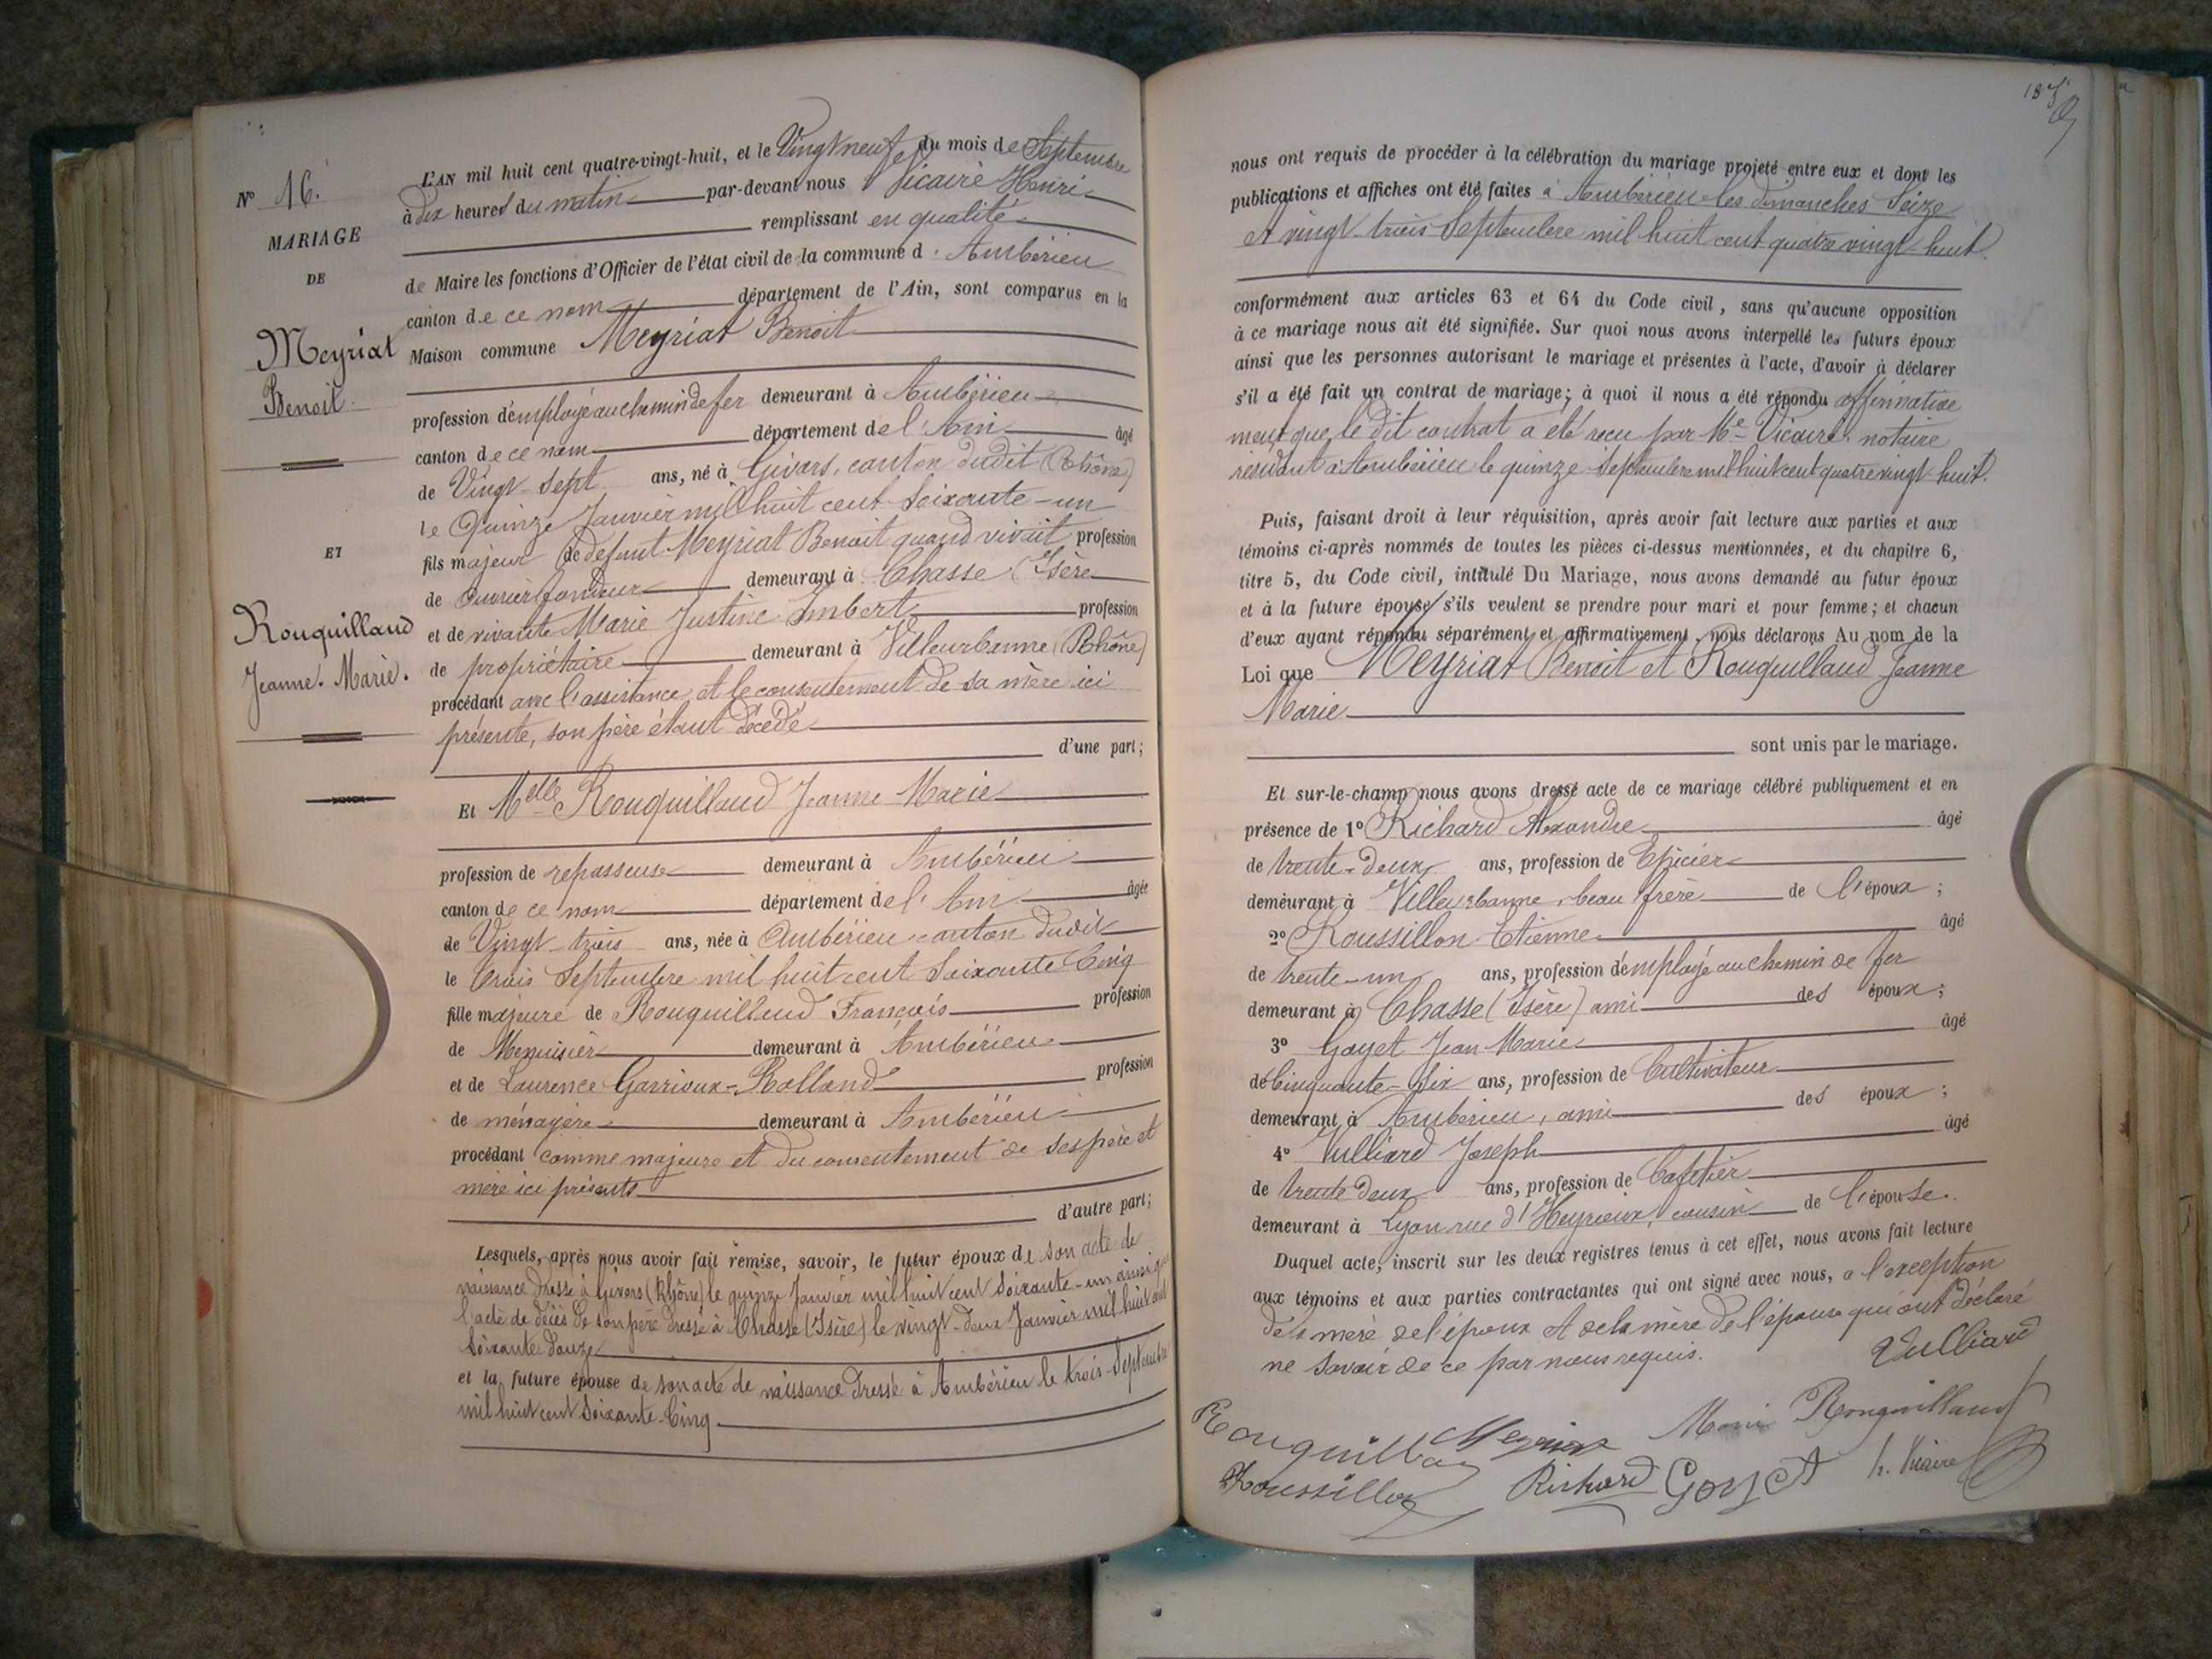 N° 16.
MARIAGE
DE
Meyriat
Benoit
ET
Rouquillaud
Jeanne Marie.
L'AN mil huit cent quatre-vingt-huit, et le Vingt neuf du mois de Septembre
à dix heures du matin par-devant nous Vicaire Henri
remplissant en qualité
de Maire les fonctions d'Officier de l'état civil de la commune d'Ambérieu
canton de ce nom département de l'Ain, sont comparus en la
Maison commune Meyriat Benoit
profession d'employé au chemin de fer demeurant à Ambérieu
canton de ce nom département de l'Ain âgé
de Vingt-sept ans, né à Givors, canton dudit (Rhône)
le Quinze Janvier mil huit cent soixante-un
fils majeur de defunt Meyriat Benoit quand vivait profession
de ouvrier fondeur demeurant à Chasse (Isère
et de vivante Marie Justine Imbert profession
de propriétaire demeurant à Villeurbanne (Rhône)
procédant avec l'assistance et le consentement de sa mère ici
présente, son père étant décédé
d'une part;
Et Melle Rouquillaud Jeanne Marie
profession de repasseuse demeurant à Ambérieu
canton de ce nom département de l'Ain âgée
de Vingt-trois ans, née à Ambérieu canton dudit
le trois Septembre mil huit cent soixante Cinq
fille majeure de Rouquillaud François profession
de Menuisier demeurant à Ambérieu
et de Laurence Garrioux-Rolland profession
de ménagère demeurant à Ambérieu
procédant comme majeure et du consentement de ses père et
mère ici présents
d'autre part;
Lesquels, après nous avoir fait remise, savoir, le futur époux de son acte de
naissance dressé à Givors (Rhône) le quinze Janvier mil huit cent soixante-un ainsi que
l'acte de décès de son père dressé à Chasse (Isère) le vingt-deux Janvier mil huit cent
soixante douze
et la future épouse de son acte de naissance dressé à Ambérieu le trois Septembre
mil huit cent soixante-Cinq
nous ont requis de procéder à la célébration du mariage projeté entre eux et dont les
publications et affiches ont été faites à Ambérieu les dimanches Seize
et vingt-trois Septembre mil huit cent quatre vingt-huit.
conformément aux articles 63 et 64 du Code civil, sans qu'aucune opposition
à ce mariage nous ait été signifiée. Sur quoi nous avons interpellé les futurs époux
ainsi que les personnes autorisant le mariage et présentes à l'acte, d'avoir à déclarer
s'il a été fait un contrat de mariage; à quoi il nous a été répondu affirmative
ment que le dit contrat a été reçu par Me Vicaire notaire
résidant à Ambérieu le quinze Septembre mil huit cent quatre vingt-huit.
Puis, faisant droit à leur réquisition, après avoir fait lecture aux parties et aux
témoins ci-après nommés de toutes les pièces ci-dessus mentionnées, et du chapitre 6,
titre 5, du Code civil, intitulé Du Mariage, nous avons demandé au futur époux
et à la future épouse s'ils veulent se prendre pour mari et pour femme; et chacun
d'eux ayant répondu séparément et affirmativement, nous déclarons Au nom de la
Loi que Meyriat Benoit et Rouquillaud Jeanne
Marie
sont unis par le mariage.
Et sur-le-champ nous avons dressé acte de ce mariage célébré publiquement et en
présence de 1° Richard Alexandre âgé
de trente-deux ans, profession de Epicier
demeurant à Villeurbanne, beau frère de l'époux;
2° Roussillon Etienne âgé
de trente-un ans, profession d'employé au chemin de fer
demeurant à Chasse (Isère) ami des époux;
3° Goyet Jean Marie âgé
de Cinquante-six ans, profession de Cultivateur
demeurant à Ambérieu, ami des époux;
4° Vulliard Joseph âgé
de trente deux ans, profession de Cafetier
demeurant à Lyon rue d'Heyrieux, cousin de l'épouse.
Duquel acte, inscrit sur les deux registres tenus à cet effet, nous avons fait lecture
aux témoins et aux parties contractantes qui ont signé avec nous, à l'exception
de la mère de l'époux et de la mère de l'épouse qui ont déclaré
ne savoir de ce par nous requis.
Vulliard
Rouquillaud Meyriat Marie Rouquillaud
Roussillon Richard Goyet h. Vicaire